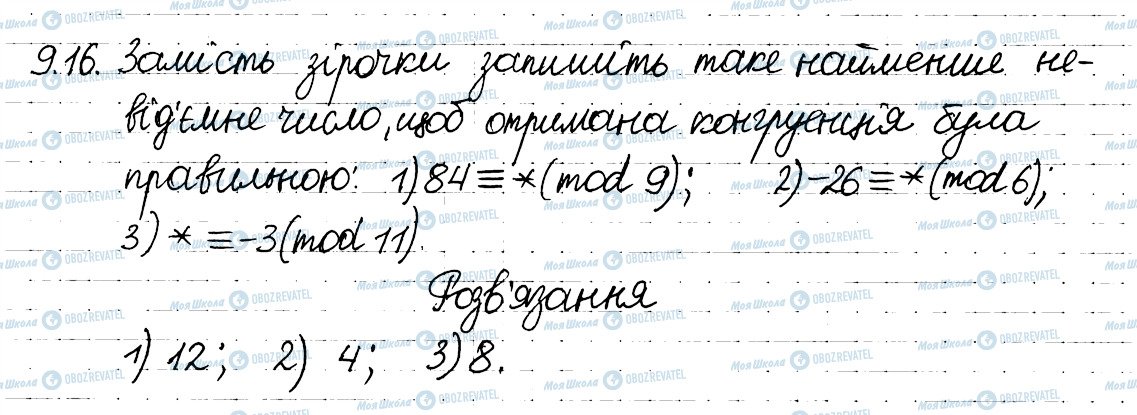 9.16. Замість зірочки запишіть таке найменше не-
від'ємне число, щоб отримана конгруенція була
правильною: 1) 84 ≡ * (mod 9); 2) -26 ≡ * (mod 6);
3) * ≡ -3 (mod 11).
Розв'язання
1) 12; 2) 4; 3) 8.